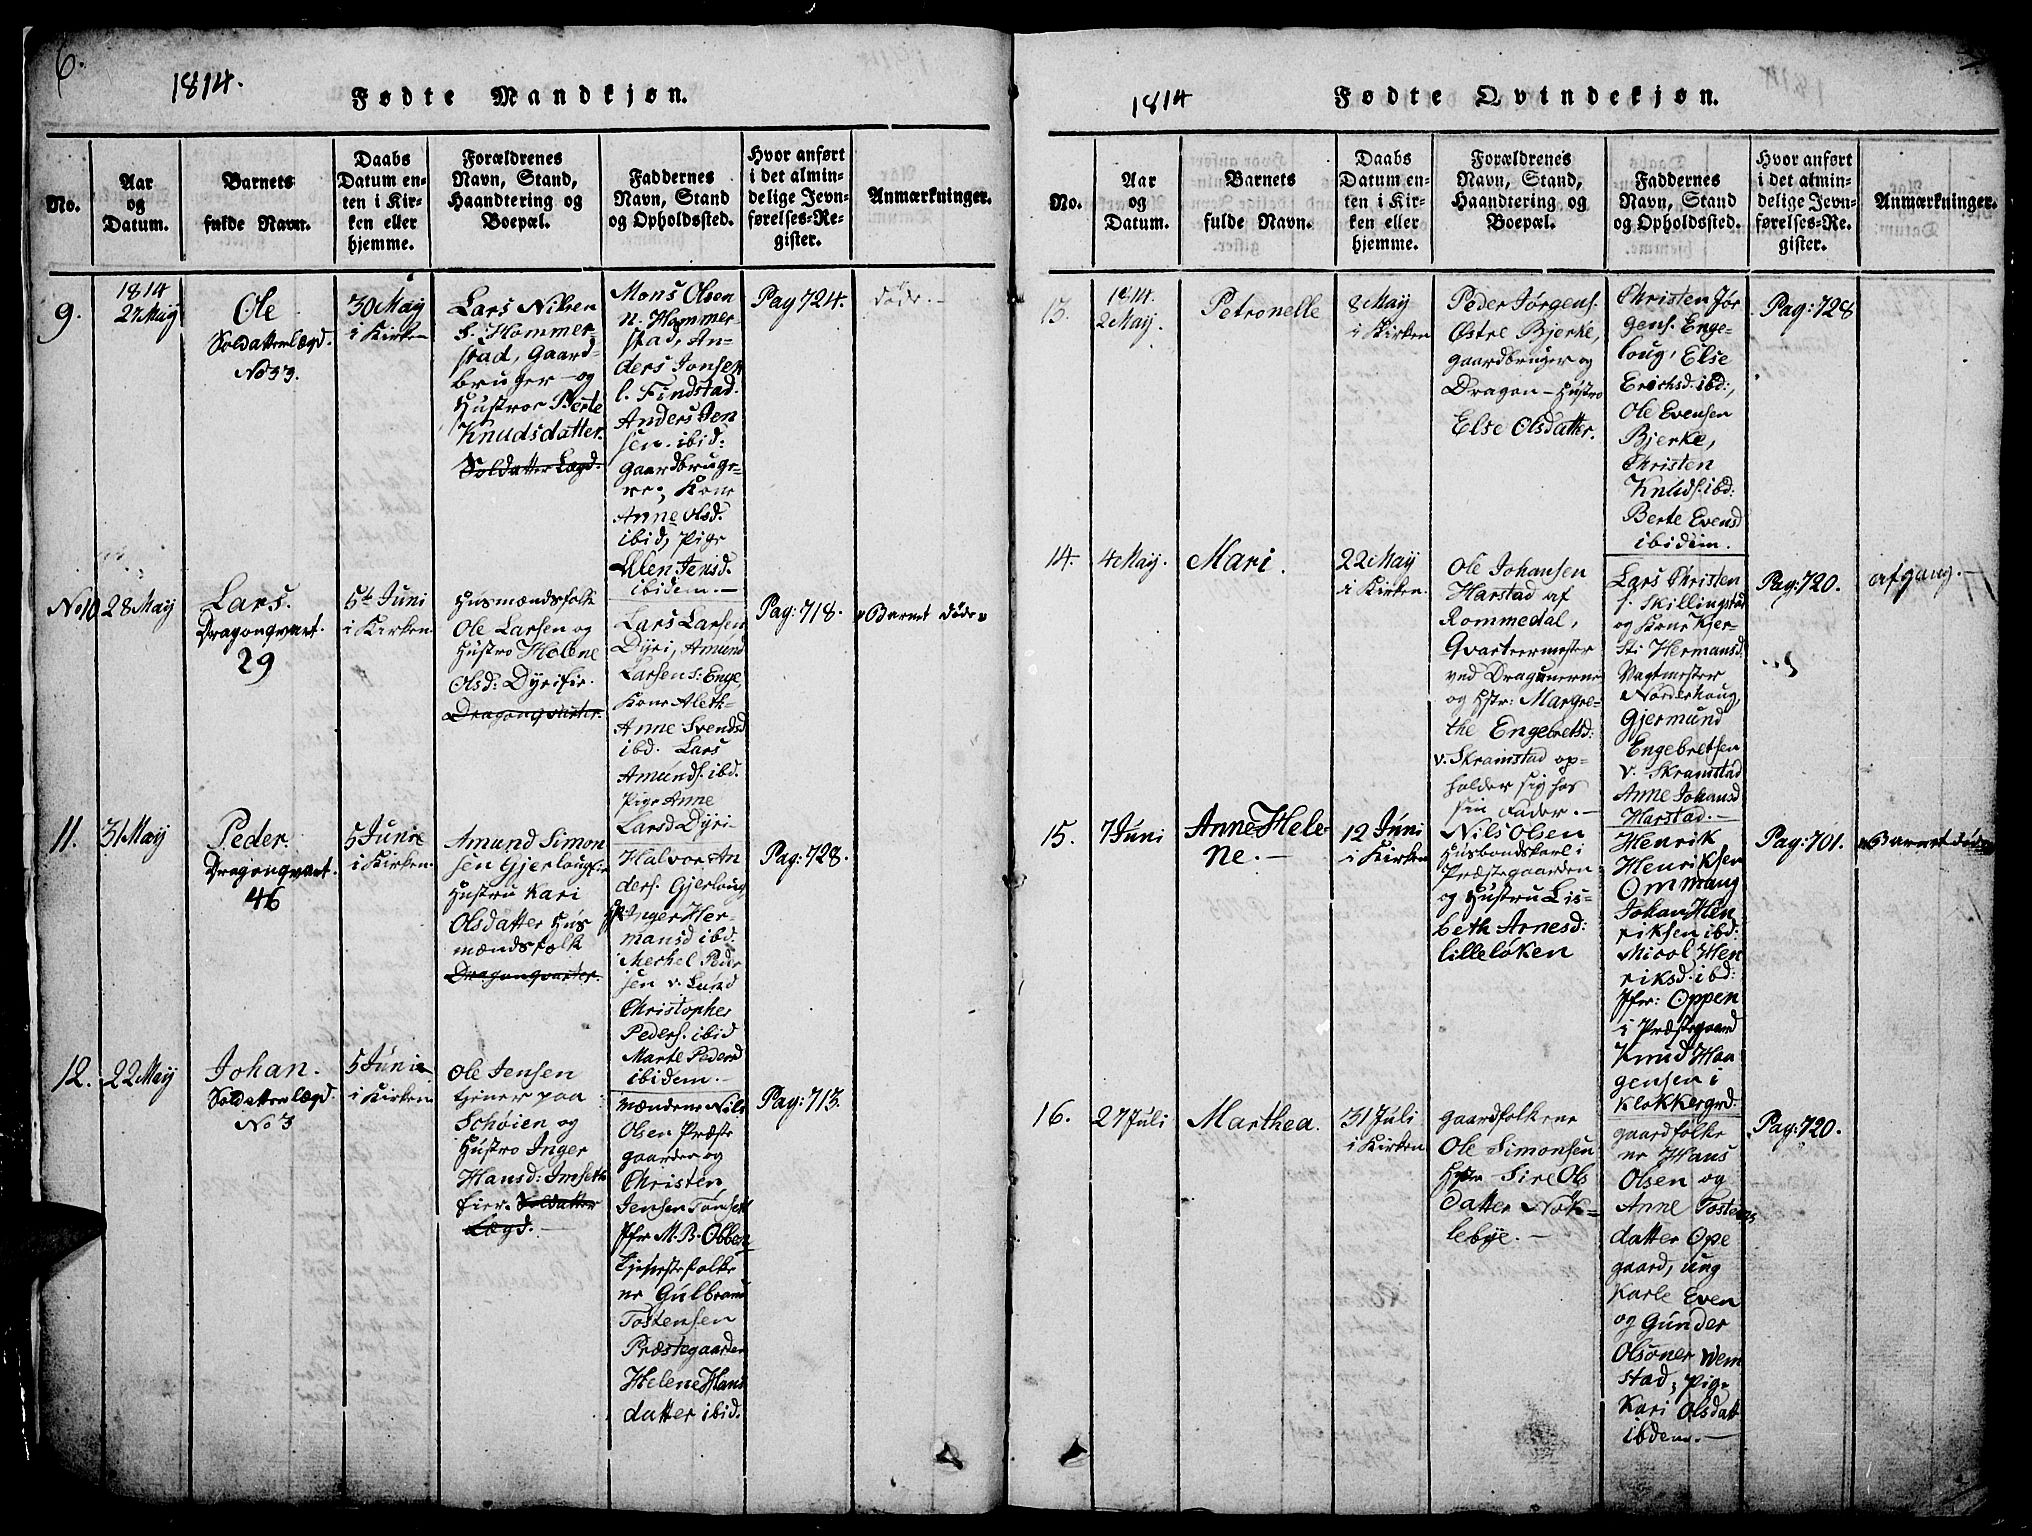 6.
1814.
Fødte Mandkjøn.
No.
Aar
og
Datum.
Barnets
fulde Navn.
Daabs
Datum en-
ten i Kir-
ken eller
hjemme.
Forældrenes
Navn, Stand,
Haandtering og
Boepæl.
Faddernes
Navn, Stand
og Opholdssted.
Hvor anført
i det almin-
delige Jevn-
førelses-Re-
gister.
Anmærkninger.
9.
1814
27 May
Ole
Soldatterlægd.
No 33.
30 May
i Kirken
Lars Nilsen
s. Hommer-
stad, Gaard-
bruger og
Hustroe Berte
Knudsdatter.
Soldatter Lægd.
Mons Olsen
n. Hommer-
stad, An-
ders Jonsen
l. Findstad.
Anders Jen
sen. ibid:
gaardbruge-
re, Kone
Anne Olsd.
ibid, Pige
Ellen Jensd.
ibidem.-
Pag 724.
døde.-
No 10
28 May
Lars.
Dragonqvart.
29
5te Juni
i Kirken
Husmændsfolk
Ole Larsen og
Hustro Helene
Olsd: Dyrifie.
Dragonqvarter.
Lars Larsen
Dyri, Amund
Larsen s: Enge,
Kone Aleth-
Anne Svendsd
ibd. Lars
Amunds. ibd.
Pige Anne
Larsd Dyri-
Pag: 718.
"Barnet døde"
11.
31 May
Peder
Dragonqvart.
46
5 Junie
i Kirken
Amund Simon
sen Gjerlougfie
Hustru Kari
Olsdatter Hus
mændsfolk
Dragonqvarter.
Halvor An
ders. Gjerloug
Inger Her-
mansd ibd:
Merkel Peder
sen v. Lund
Christopher
Peders. ibid
Marte Pedersd
ibidem.-
Pag: 728.
12.
22 May
Johan.
Soldatterlægd.
No 3
5 Junie
i Kirken
Ole Jensen
tjener paa
Schøien og
Hustro Inger
Hansd: Imseth
fier. Soldatter
Lægd.-
Mændene Nils
Olsen Præste
gaarden og
Christen
Jensen Tomset
Jfr M. B. Obben
Tjenestefolke
ne Gulbrand
Tostensen
Præstegaarden
Helene Hans
datter ibid.
Pag: 713.
1814
Fødte Qvindekjøn.
No.
Aar
og
Datum.
Barnets
fulde Navn.
Daabs
Datum en-
ten i Kir-
ken eller
hjemme.
Forældrenes
Navn, Stand,
Haandtering og
Boepæl.
Faddernes
Navn, Stand
og Opholdssted.
Hvor anført
i det almin-
delige Jevn-
førelses-Re-
gister.
Anmærkninger.
13.
1814.
2 May.
Petronelle
8 May
i Kirken
Peder Jørgens.
Østre Bjerke,
gaardbruger og
Dragon-Hustro
Else Olsdatter.
Christen Jør
gens. Enge-
loug, Else
Erichsd. ibd:,
Ole Evensen
Bjerke,
Christen
Knuds. ibd:
Berte Evensd
ibidem.
Pag: 728
14.
4 May.
Mari.
22 May
i Kirken.
Ole Johansen
Harstad af
Rommedal,
Qvarteermester
ved Dragunerne
og Hstr: Margre-
the Engebretsd:
v. Skramstad op-
holder sig hos
sin Fader.-
Lars Christen
s. Skillingstad
og Kone Kjer-
sti Hermansd.
Vagtmester
Norderhoug,
Gjermund
Engebretsen
v. Skramstad
Anne Johansd
Harstad.-
Pag: 720.
afgang.-
15.
7 Juni
Anne Hele-
ne.-
12 Juni
i Kirken
Nils Olsen
Husbondskarl i
Præstegaarden
og Hustru Lis-
beth Arnesd:
Lilleløken
Henrik
Henriksen
Ommang
Johan Hen
riksen ibd:
Micol Hen
riksd. ibd:
Jfr: Oppen
i Præstegaard
Knud Haa
gensen i
Klokkergrd:
Pag: 701.
"Barnet døde
16.
27 Juli
Marthea.
31 Juli
i Kirken
gaardfolkene
Ole Simonsen
Hstr Sire Ols
datter Nøk-
lebye.-
gaardfolke
ne Hans
Olsen og
Anne Tostens
datter Ope
gaard, ung
Karle Even
og Gunder
Olsøner Wem
stad, Pige
Kari Olsdatt
ibdem.-
Pag: 720.